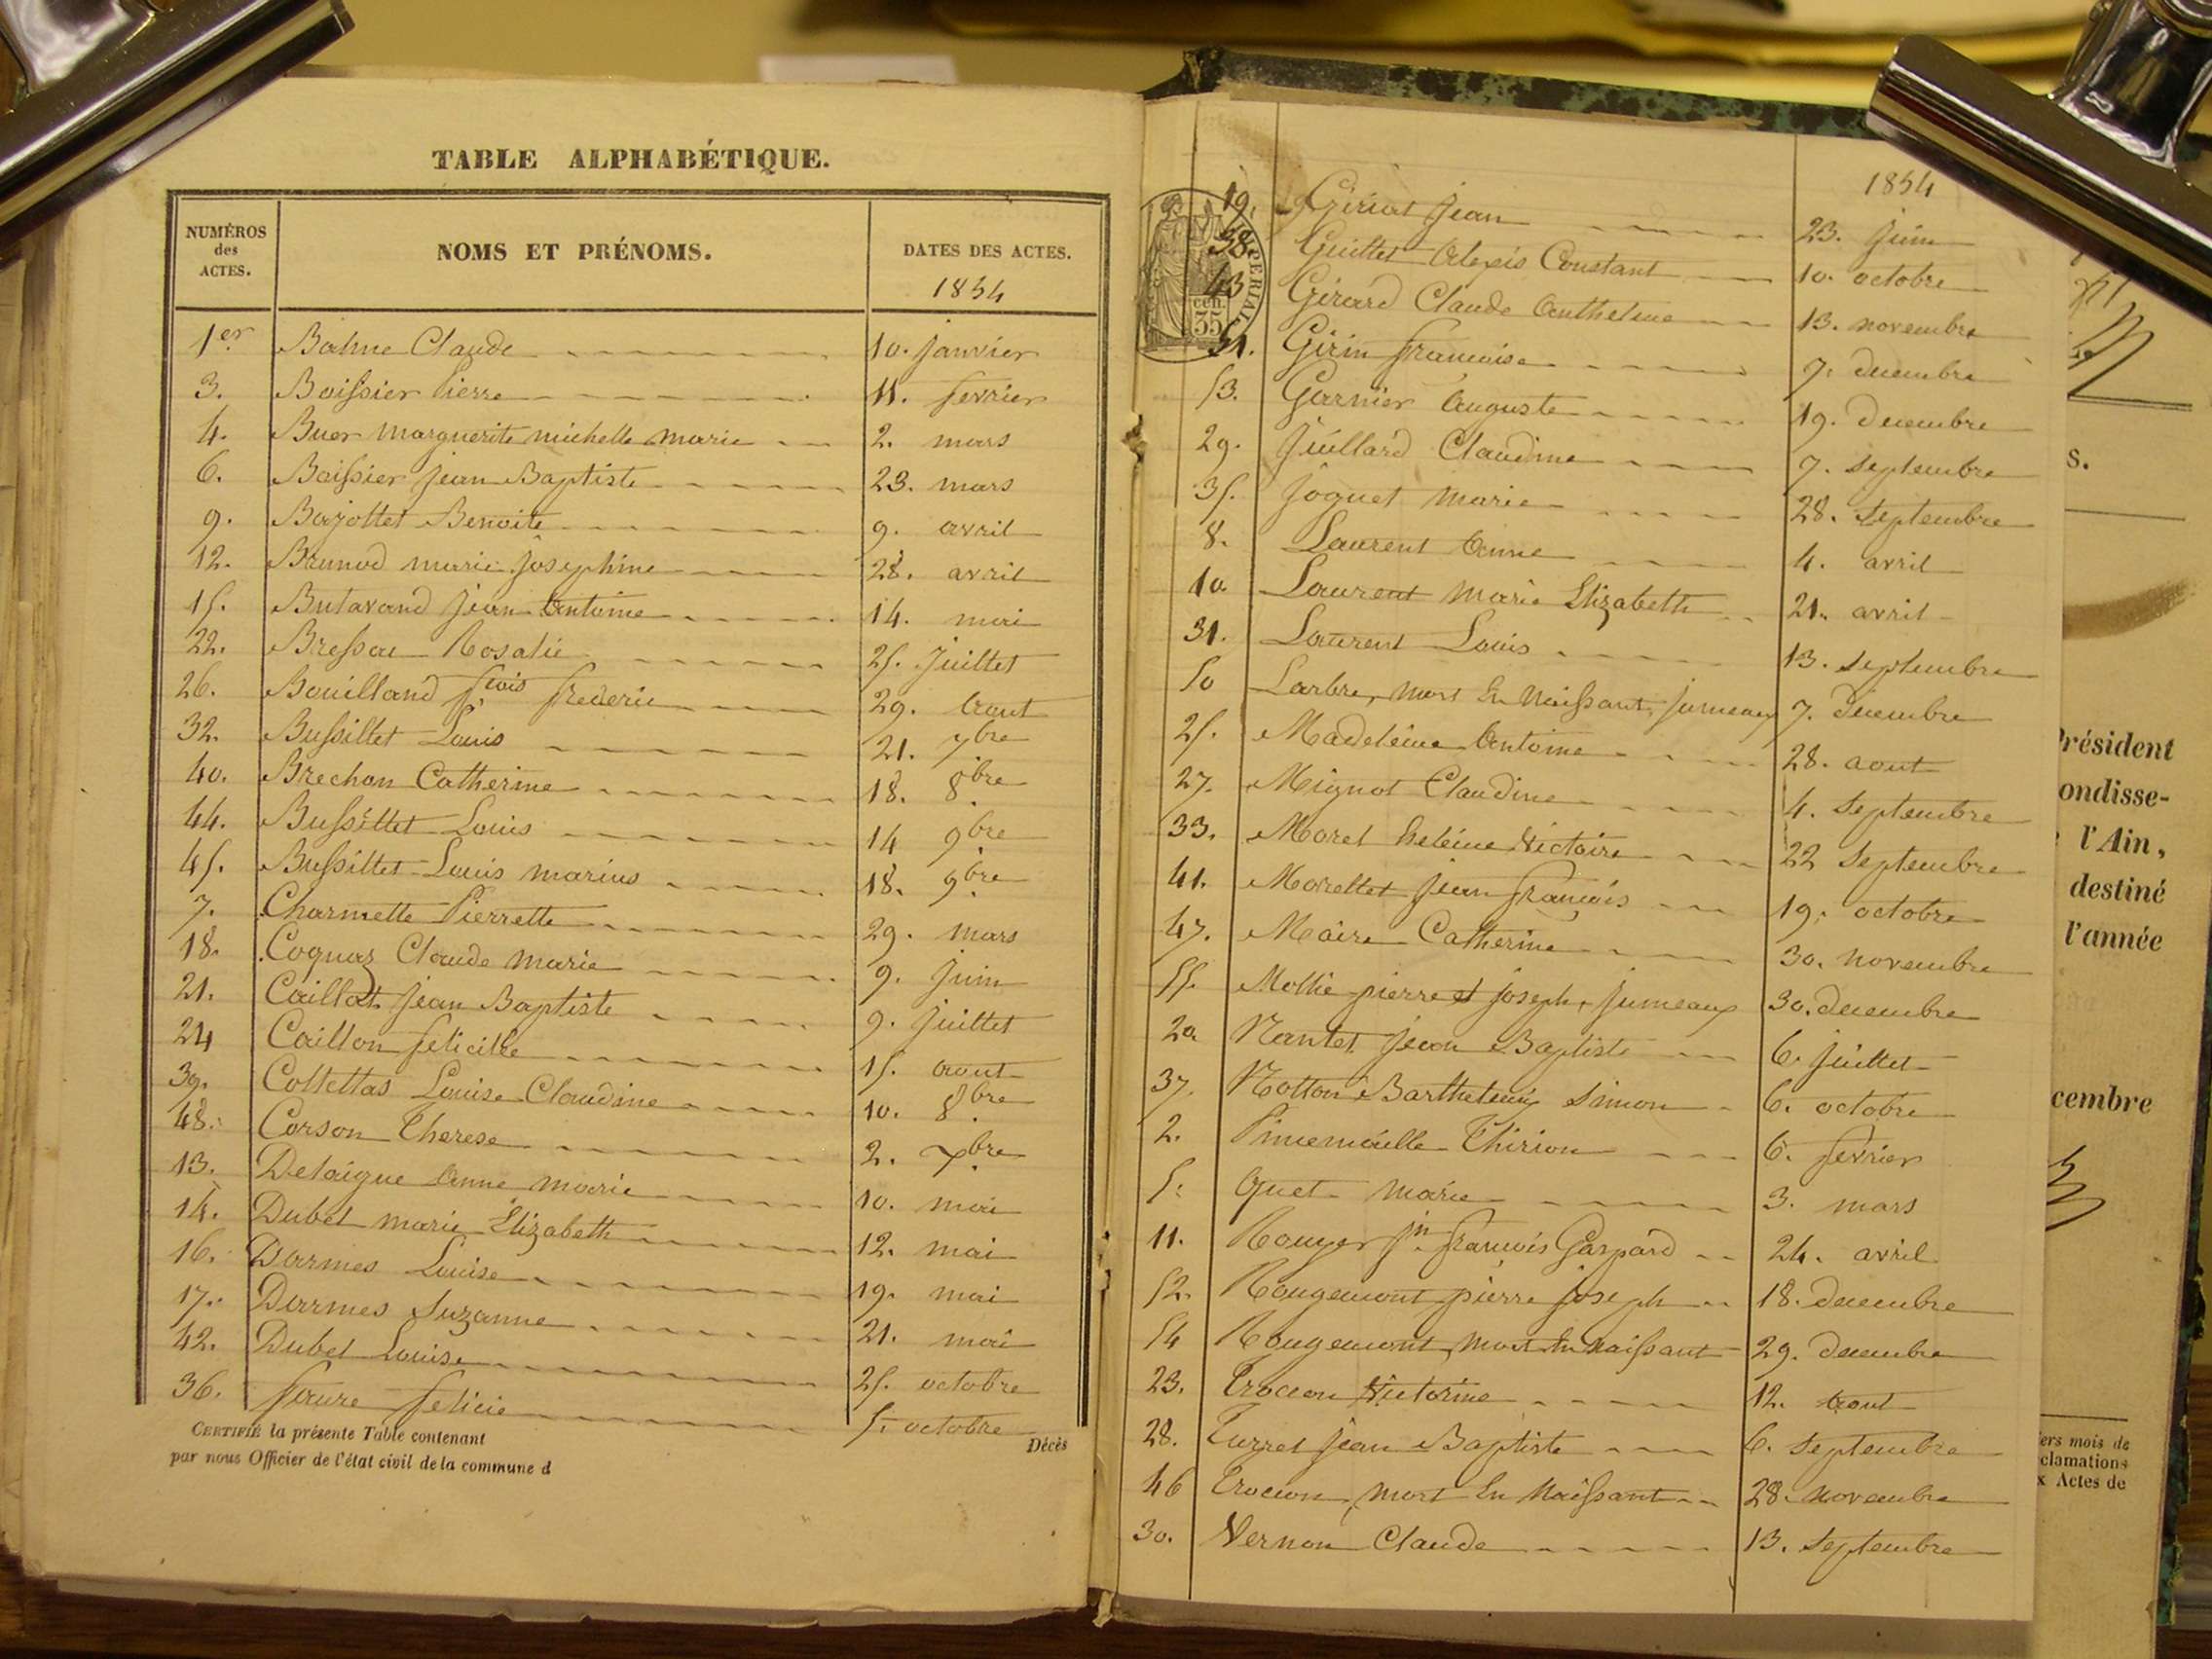 TABLE ALPHABÉTIQUE.
NUMÉROS des ACTES.
NOMS ET PRÉNOMS.
DATES DES ACTES.
1854
1er Bahne Claude 10. janvier
3. Boissier Pierre 11. fevrier
4. Buer marguerite michelle marie 2. mars
6. Boissier jean Baptiste 23. mars
9. Bajollet Benoite 9. avril
12. Brunod marie josephine 28. avril
15. Butavand jean Antoine 14. mai
22. Bressou Rosalie 25. juillet
26. Bouilland fcois frederic 29. Aout
32. Bussillet Louis 21. 7bre
40. Brechon Catherine 18. 8bre
44. Bussillet Louis 14 9bre
45. Bussillet Louis marius 18. 9bre
7. Charmette Pierrette 29. mars
18. Coquaz Claude marie 9. juin
21. Caillat jean Baptiste 9. juillet
24 Caillon felicitée 15. aout
39. Collettas Louise Claudine 10. 8bre
48. Corson Therese 2. Xbre
13. Delaigue Anne marie 10. mai
14. Dubet marie Elizabeth 12. mai
16. Darmes Louise 19. mai
17. Darmes Suzanne 21. mai
42. Dubet Louise 25. octobre
36. faure felicie 5. octobre
CERTIFIÉ la présente Table contenant
Décès
par nous Officier de l'état civil de la commune d
1854
IMPERIAL
35 cen.
19. Giriat jean 23. juin
38. Guillet Alexis Constant 10. octobre
43 Girard Claude Anthelme 13. novembre
51. Girin francoise 7. decembre
53. Garnier Auguste 19. decembre
29. juillard Claudine 7. septembre
35. joguet marie 28. septembre
8. Laurent Anne 4. avril
10. Laurent marie Elizabeth 21. avril
31. Laurent Louis 13. septembre
50 Larbre, mort En Naissant, jumeaux 7. decembre
25. Madeleine Antoine 28. aout
27. Mignot Claudine 4. septembre
33. Morel heleine Victoire 22 septembre
41. Morellet jean francois 19. octobre
47. Maire Catherine 30. novembre
55. Mollie pierre et joseph, jumeaux 30. decembre
20. Nantet jean Baptiste 6. juillet
37. Notton Barthelemy simon 6. octobre
2. Pincemaille Thirion 6. fevrier
5. Quet marie 3. mars
11. Rouyer jn francois Gaspard 24. avril
52. Rougemont pierre joseph 18. decembre
54 Rougemont, mort En Naissant 29. decembre
23. Trocon Victorine 12. Aout
28. Turrel jean Baptiste 6. septembre
46 Trocon, mort En Naissant 28. novembre
30. Vernon Claude 13. septembre
s.
Président
ondisse-
l'Ain,
destiné
l'année
cembre
ers mois de
clamations
x Actes de